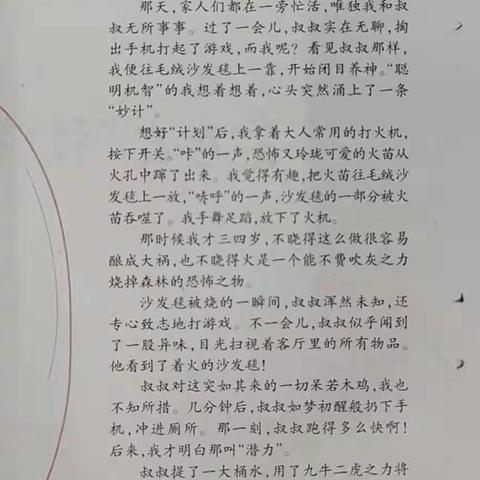 那天，家人们都在一旁忙活，唯独我和叔
叔无所事事。过了一会儿，叔叔实在无聊，掏
出手机打起了游戏，而我呢？看见叔叔那样，
我便往毛绒沙发毯上一靠，开始闭目养神。“聪
明机智”的我想着想着，心头突然涌上了一条
“妙计”。
想好“计划”后，我拿着大人常用的打火机，
按下开关。“咔”的一声，恐怖又玲珑可爱的火苗从
火孔中蹿了出来。我觉得有趣，把火苗往毛绒沙
发毯上一放，“嘭呼”的一声，沙发毯的一部分被火
苗吞噬了。我手舞足蹈，放下了火机。
那时候我才三四岁，不晓得这么做很容易
酿成大祸，也不晓得火是一个能不费吹灰之力
烧掉森林的恐怖之物。
沙发毯被烧的一瞬间，叔叔浑然未知，还
专心致志地打游戏。不一会儿，叔叔似乎闻到
了一股异味，目光扫视着客厅里的所有物品。
他看到了着火的沙发毯！
叔叔对这突如其来的一切呆若木鸡，我也
不知所措。几分钟后，叔叔如梦初醒般扔下手
机，冲进厕所。那一刻，叔叔跑得多么快啊！
后来，我才明白那叫“潜力”。
叔叔提了一大桶水，用了九牛二虎之力将